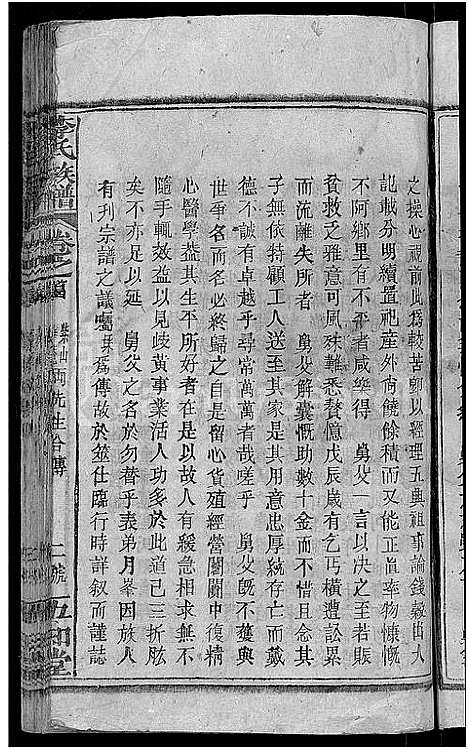 之操心視前此為較苦卽以經理五典祖事論錢穀出入
記載分明續置祀產外尚饒餘積而又能正直率物慷慨
不阿鄉里有不平者咸樂得 舅父一言以決之至若賑
貧救乏雅意可風殊難悉贅憶戊辰歲有乞丐橫遭訟累
而流離失所者 舅父解囊慨助數十金而不惜且念其
子無依特顧工人送至其家是其用意忠厚統存亡而戴
德不誠有卓越乎尋常萬萬者哉嗟乎 舅父旣不獲與
世爭名而名必終歸之自是留心貨殖經營闤闠中復精
心醫學葢其生平所好者在是以故人有緩急求之無不
隨手輒效益以見岐黃事業活人功多於此道已三折肱
矣不亦足以延 舅父之名於勿替乎義弟月峯因族人
有刋宗譜之議囑 為傳故於筮仕臨行時詳叙而謹誌
李氏族譜 卷之 萬 紫仙両先生合傳 二號 五和堂